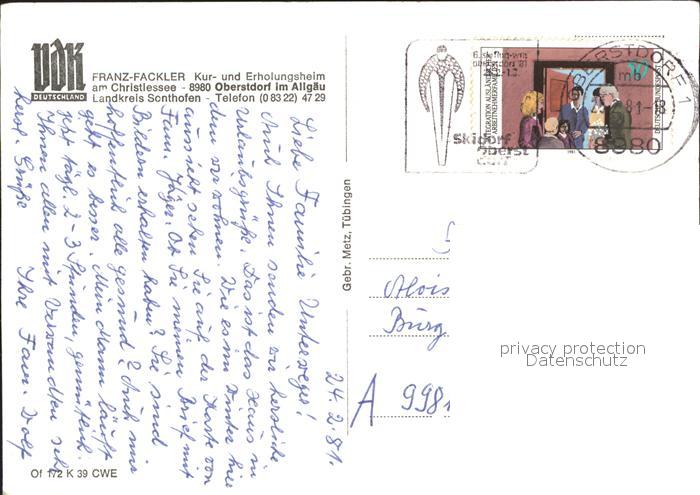 VdK
DEUTSCHLAND
FRANZ-FACKLER Kur- und Erholungsheim
am Christlessee - 8980 Oberstdorf im Allgäu
Landkreis Sonthofen - Telefon (0 83 22) 47 29
24.2.81.
Liebe Familie Unterweger!
Auch Ihnen senden wir herzliche
Urlaubsgrüße. Das ist das Haus in
dem wir wohnen. Wie es im Winter hier
aussieht sehen Sie auf der Karte von
Fam. Jäger. Ob Sie meinen Brief mit
Bildern erhalten haben? Sie sind
hoffentlich alle gesund? Auch mir
geht es besser. Mein Mann läuft
jetzt tägl. 2-3 Stunden, gemütlich.
Ihnen allen mit Verwandten sehr
herzl. Grüße Ihre Fam. Dolf
Of 172 K 39 CWE
Gebr. Metz, Tübingen
Skidorf
oberst
dorf
OBERSTDORF 1
8980
INTEGRATION AUSLÄNDISCHER
ARBEITNEHMERFAMILIEN
DEUTSCHE BUNDESPOST
50
Alois
Burg
A 998
privacy protection
Datenschutz